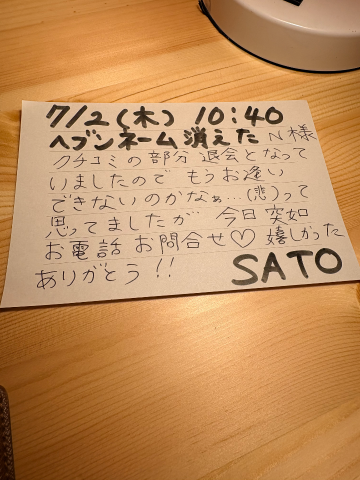 7/2(木) 10:40
ヘブンネーム消えた N様
クチコミの部分 退会となって
いましたので もうお逢い
できないのかなぁ…(悲)って
思ってましたが 今日 突如
お電話 お問合せ♡ 嬉しかった
ありがとう!! SATO